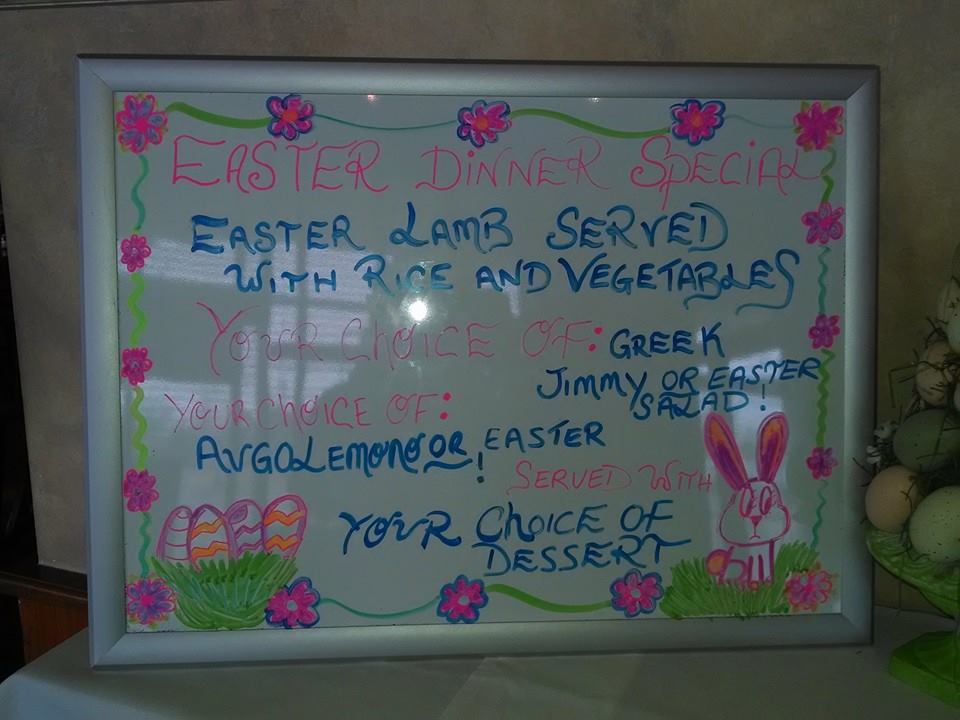 EASTER DINNER SPECIAL
EASTER LAMB SERVED
WITH RICE AND VEGETABLES
YOUR CHOICE OF: GREEK
JIMMY OR EASTER
SALAD!
YOUR CHOICE OF:
AVGOLEMONO OR EASTER!
SERVED WITH
YOUR CHOICE OF
DESSERT